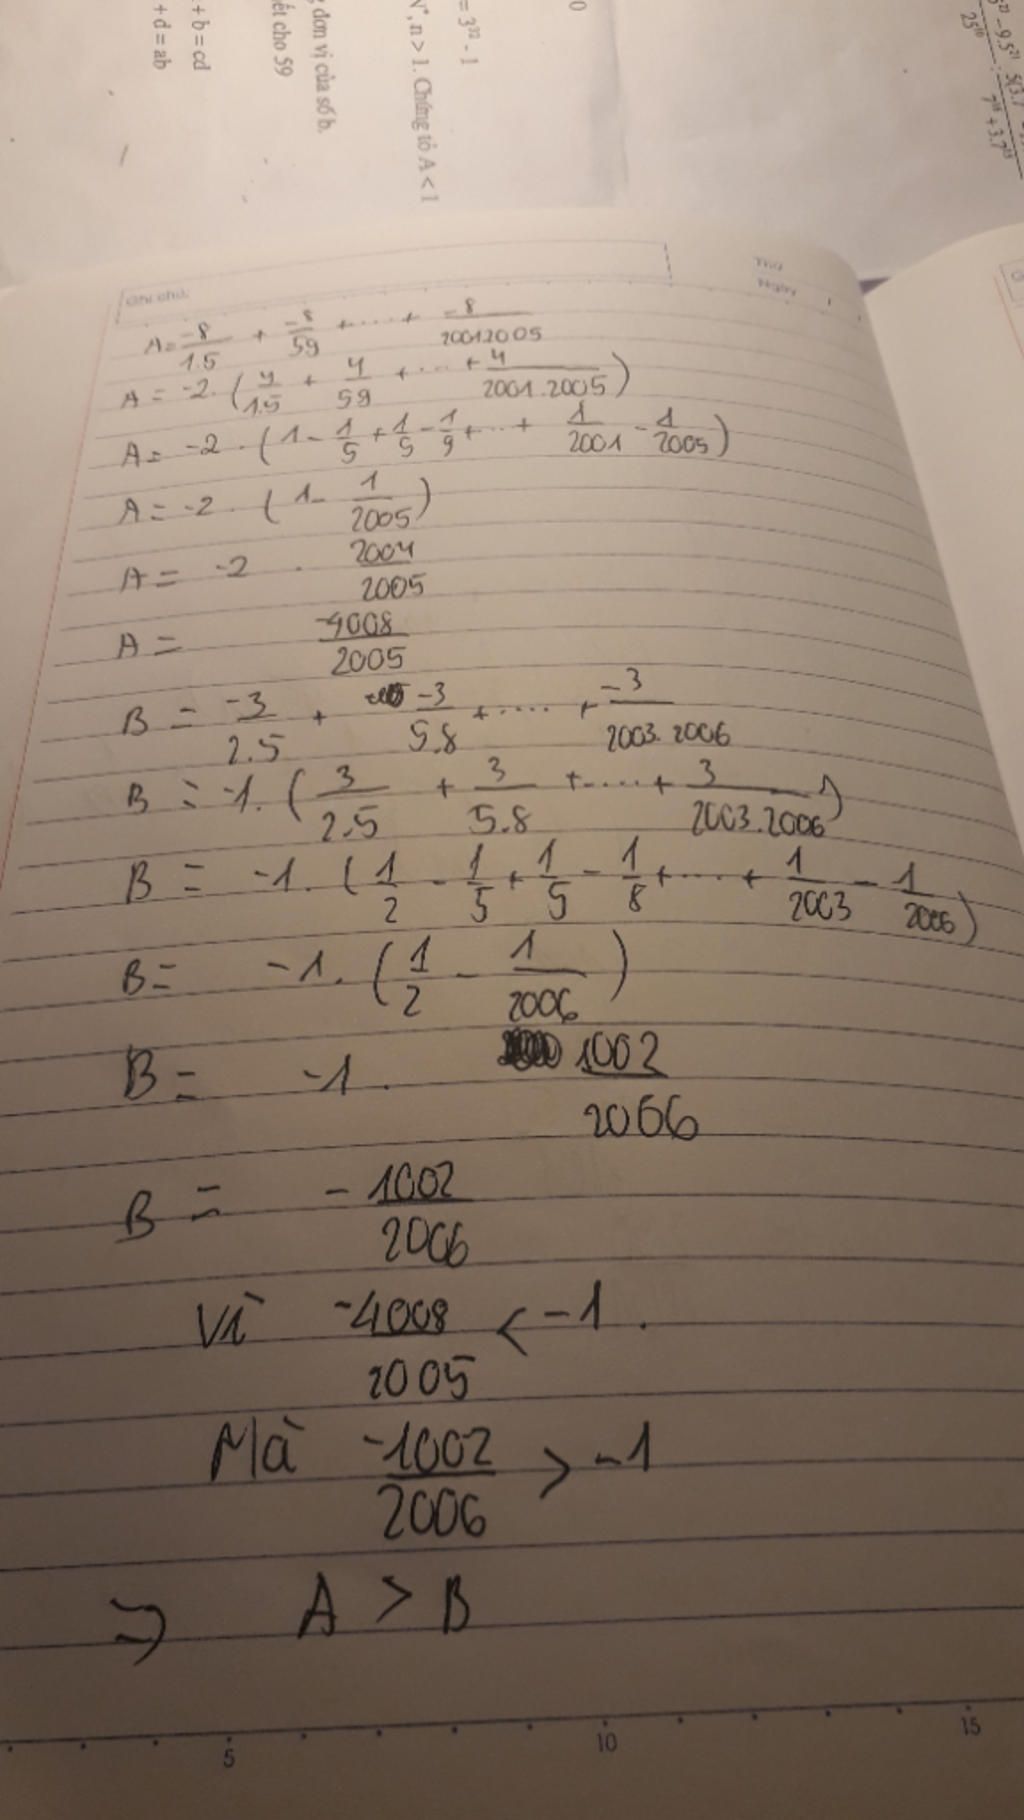 = 3³² - 1
N*, n > 1. Chứng tỏ A < 1
đơn vị của số b.
ết cho 59
+ b = cd
+ d = ab
Ghi chú:
Thứ
Ngày
A = -8/1.5 + -8/59 + .... + -8/20012005
A = -2. (4/1.5 + 4/59 + ... + 4/2001.2005)
A = -2 . (1 - 1/5 + 1/5 - 1/9 + ... + 1/2001 - 1/2005)
A = -2 . (1 - 1/2005)
A = -2 . 2004/2005
A = -4008/2005
B = -3/2.5 + -3/5.8 + .... + -3/2003.2006
B = -1. (3/2.5 + 3/5.8 + .... + 3/2003.2006)
B = -1. (1/2 - 1/5 + 1/5 - 1/8 + .... + 1/2003 - 1/2006)
B = -1. (1/2 - 1/2006)
B = -1. 1002/2006
B = -1002/2006
Vì -4008/2005 < -1.
Mà -1002/2006 > -1
=> A > B
5 10 15